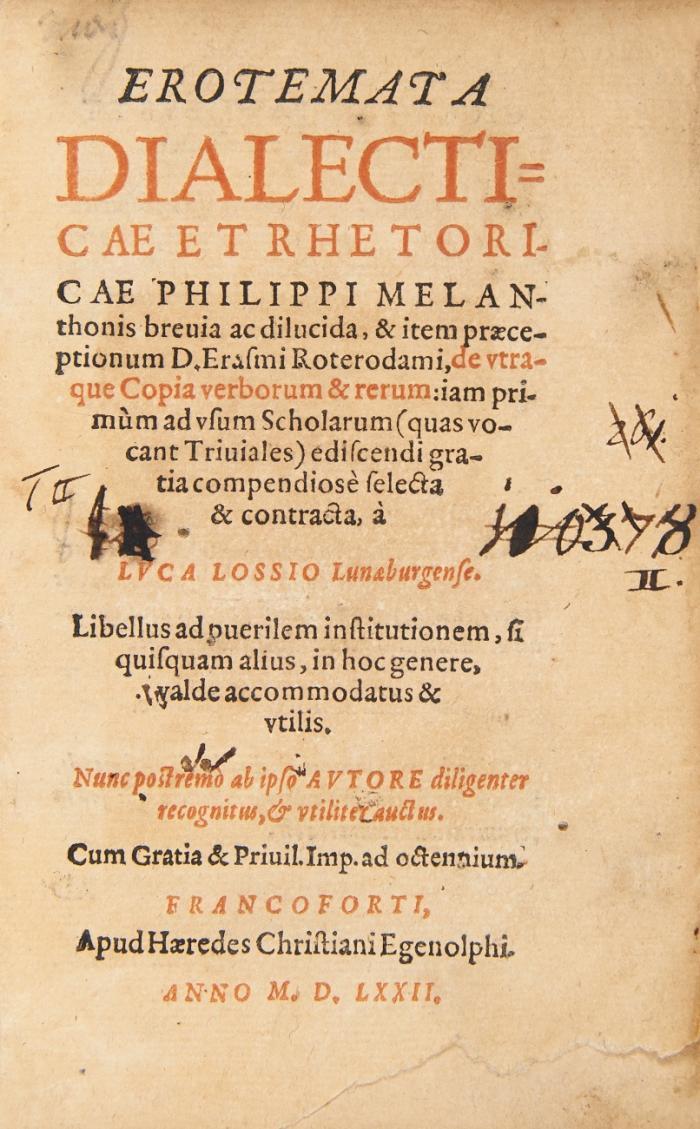 EROTEMATA
DIALECTI=
CAE ET RHETORI-
CAE PHILIPPI MELAN-
thonis breuia ac dilucida, & item præce-
ptionum D. Eraſmi Roterodami, de vtra-
que Copia verborum & rerum: iam pri-
mùm ad vſum Scholarum (quas vo-
cant Triuiales) ediſcendi gra-
tia compendiosè ſelecta
& contracta, à
LVCA LOSSIO Lunæburgenſe.
Libellus ad puerilem inſtitutionem, ſi
quiſquam alius, in hoc genere,
valde accommodatus &
vtilis.
Nunc poſtremò ab ipſo AVTORE diligenter
recognitus, & vtiliter auctus.
Cum Gratia & Priuil. Imp. ad octennium.
FRANCOFORTI,
Apud Hæredes Chriſtiani Egenolphi.
ANNO M. D. LXXII.
II.